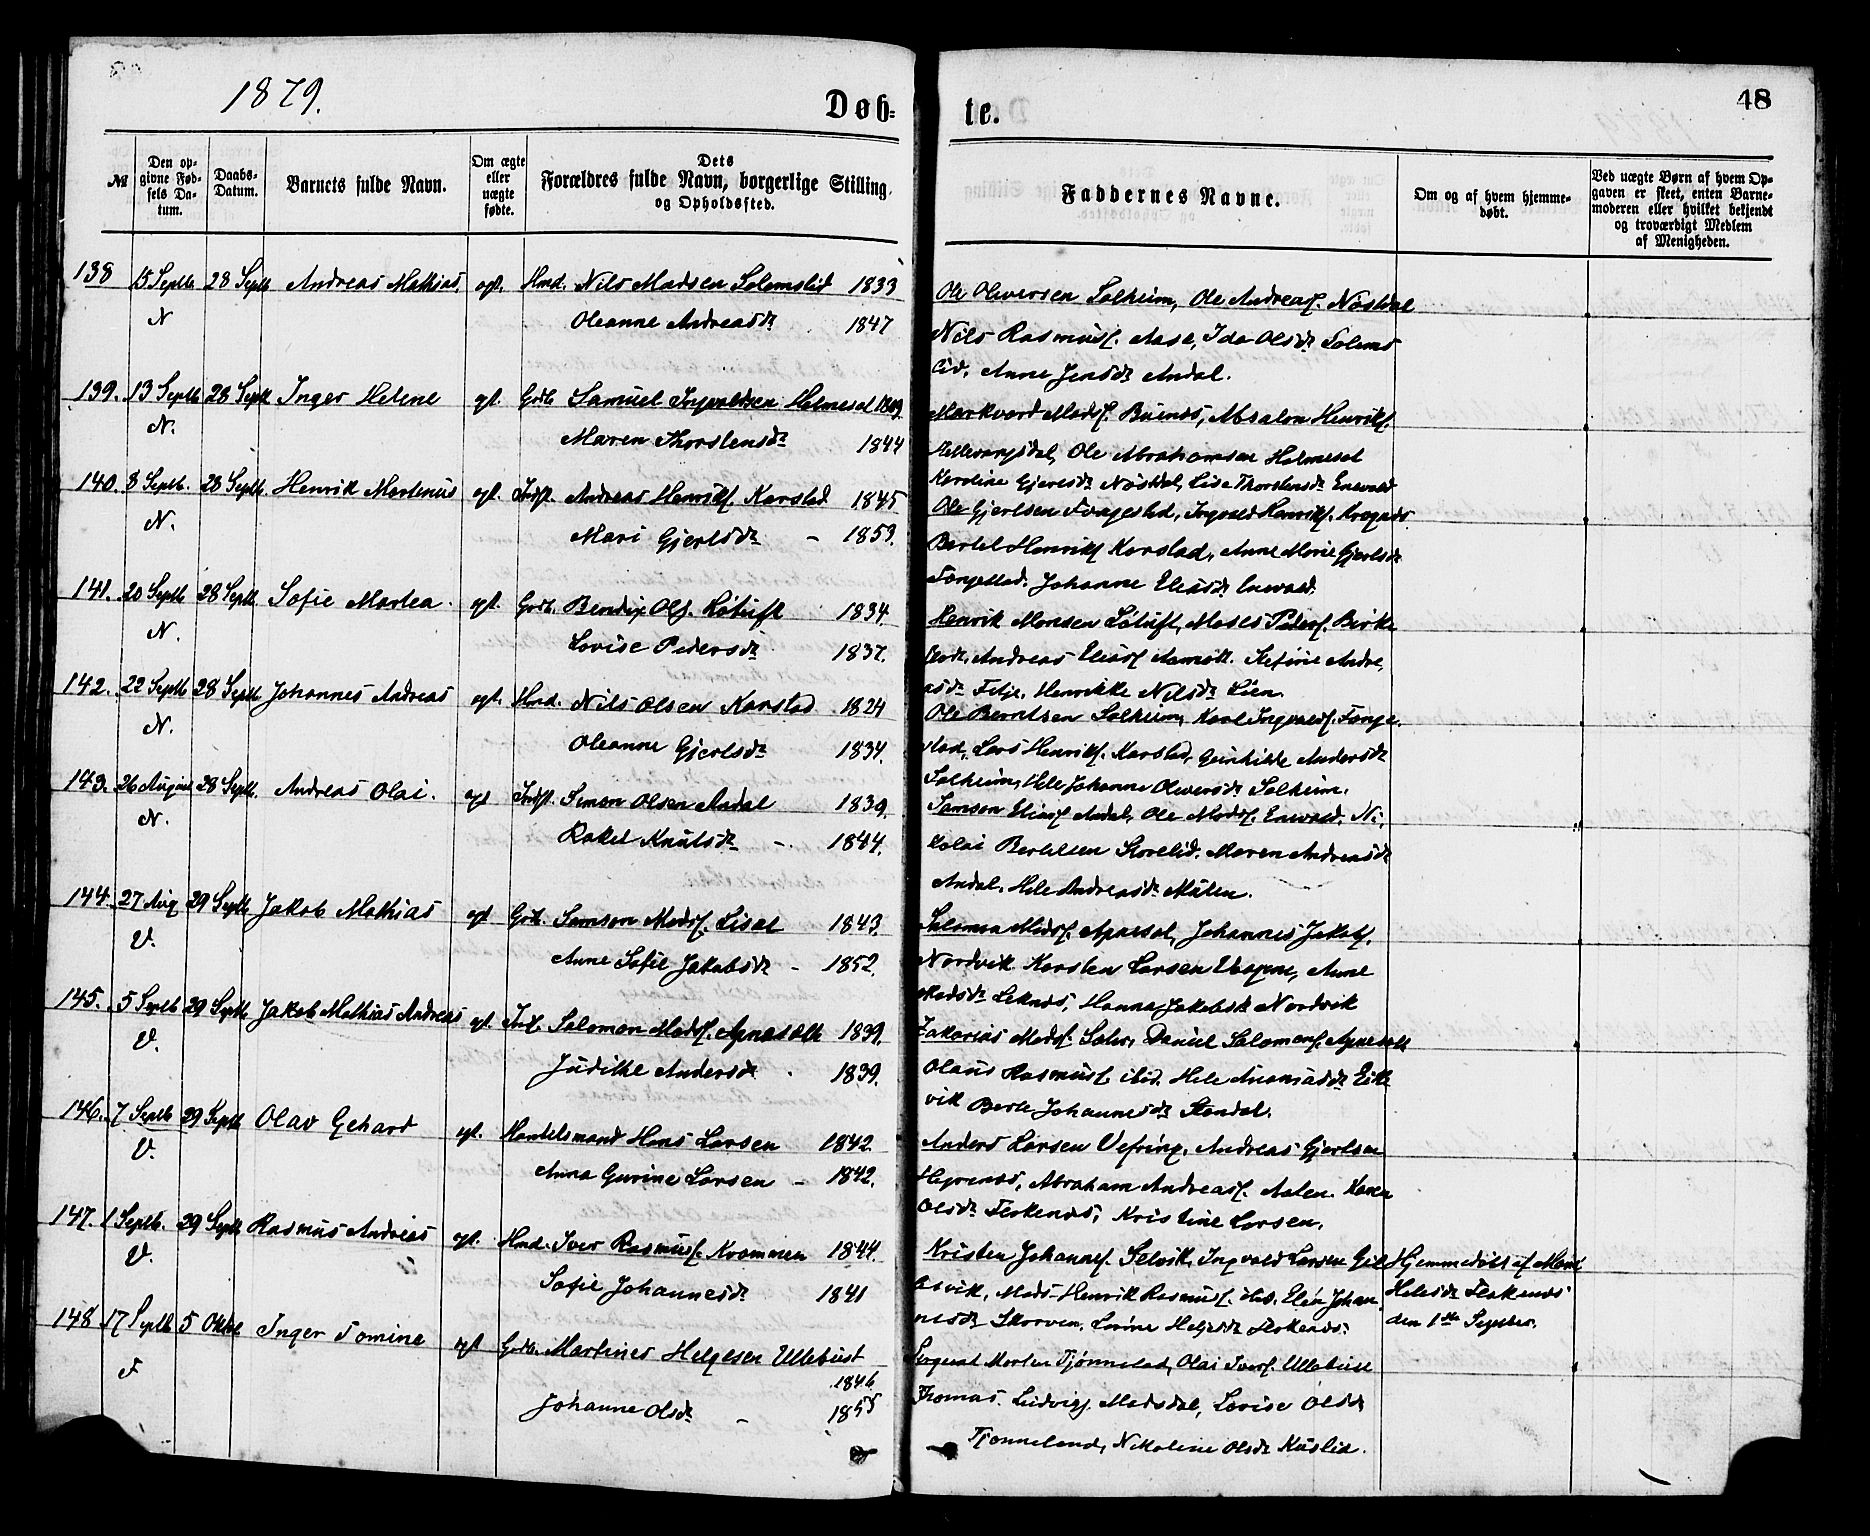 1879.
Døb-
te.
48
№
Den op-
givne Fød-
sels Da-
tum.
Daabs-
Datum.
Barnets fulde Navn.
Om ægte
eller
uægte
fødte.
Dets
Forældres fulde Navn, borgerlige Stilling,
og Opholdssted.
Faddernes Navne.
Om og af hvem hjemme-
døbt.
Ved uægte Børn af hvem Op-
gaven er skeet, enten Barne-
moderen eller hvilket bekjendt
og troværdigt Medlem
af Menigheden.
138 15 Septb 28 Septb Andreas Mathias. egt. Hmd. Nils Madsen Solemslid 1833
N Oleanne Andreasdr 1847
Ole Oliversen Solheim, Ole Andreas. Nøstdal
Nils Rasmus. Aase, Ida Olsdr Solems
lid, Anne Jensdr Andal.
139. 13 Septb 28 Septb Inger Helene egt. Grdb Samuel Ingvaldsen Helmeset
N. Maren Thorstensdr 1844
Markvard Mads. Buenes, Absalon Henriks.
Ole Abrahamsen Helmeset
Karoline Gjertsdr Nøstdal, Lise Thorstensdr Enevald
140. 8 Septb. 28 Septb Henrik Martenus egt. Indst. Andreas Henriks. Karstad 1845
N. Mari Gjertsdr - 1853.
Ole Gjertsen Fagestad, Ingvald Henriks.
Bertel Henriks Karstad, Anne Marie Gjertsdr
Johanne Eliasdr Enevald.
141. 20 Septb 28 Septb Sofie Martea. egt. Grdb. Bendix Ols. Løtuft 1834
N. Lovise Pedersdr 1837.
Henrik Monsen Løtuft, Moses Peders. Birke
Andreas Elias Aamot. Stefine Andre,
asdr Fitje. Henrikke Nilsdr Lien.
142. 22 Septb 28 Septb Johannes Andreas egt. Hmd. Nils Olsen Karstad 1824
N. Oleanne Gjertsdr 1834.
Ole Berntsen Solheim, Karl Ingvalds. Fange.
stad, Lars Henriks. Karstad, Gunhilde Andersdr
Solheim, Hele Johanne Oliversdr Solheim.
143. 26 August 28 Septb. Andreas Olai. egt Indst. Simon Olsen Andal 1839,
N. Rakel Knutsdr - 1844.
Samson Elias Andal, Ole Mads. Enevald, Ni,
kolai Bertelsen Storelid. Maren Andreasdr
Andal. Hele Andreasdr Myten.
144. 27 Aug 29 Septb Jakob Mathias egt Grdb. Samson Mads. Liset 1843.
V. Anne Sofie Jakobsdr - 1852.
Salomon Mads. Apaesal, Johannes Jakobs.
Nordvik Karsten Larsen Anne
Madsdr Leknes, Hanna Jakobsdr Nordvik
145. 5 Septb 29 Septb Jakob Mathias Andreas egt. Inds. Salomon Mads. 1839.
V. Judithe Andersdr . 1839.
Zakarias Mads. Daniel Salomons.
Olaus Rasmus. ibid. Hele Eike
vik Berte Johannesdr Stendal.
146. 7 Septb 29 Septb Olav Gehard egt. Handelsmand Hans Larsen 1842
V. Anna Gurine Larsen - 1842.
Anders Larsen Vefring, Andreas Gjertsen
Abraham Andreas. Aalen. Karen
Olsdr Flokenes, Kristine Larsen.
147. 1 Septb. 29 Septb Rasmus Andreas egt. Hmd. Iver Rasmus. Krammen 1844.
V. Sofie Johannesdr 1841
Kristen Johannes. Selvik, Ingvald Larsen Gil
Mads Henrik Rasmus. ibid. Johan
nesdr Skorven, Lovine Helgesdr Flokenes.
Hjemmedøbt af Mari
Helesdr Flokenes
den 1ste Septbr.
148 17 Septb 5 Oktbr Inger Tomine egt Grdb. Martines Helgesen Ullebust
1846
F Johanne Olsdr - 1855
Sergeant Morten Tjønneland, Olai Ivers. Ullebust
Thomas Ludvigs. Madsdal, Lovise Olsdr
Tjønneland, Nikoline Olsdr Kuslid.